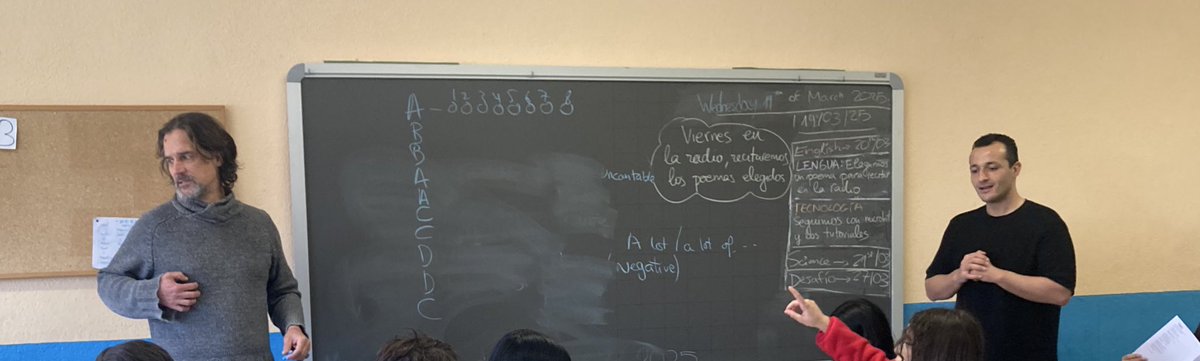 3
A - 1 2 3 4 5 6 7 8
B
B
A
A
C
C
D
D
C
Wednesday 19th of March 2025
19/03/25
Viernes en
la radio, recitaremos
los poemas elegidos
Uncantable
A lot / a lot of ...
(Negative)
English → 20/03
LENGUA: Elegimos
un poema para recitar
en la radio
TECNOLOGÍA
Seguimos con
y los tutoriales
Science → 21st/03
Desafío → 27/03
25